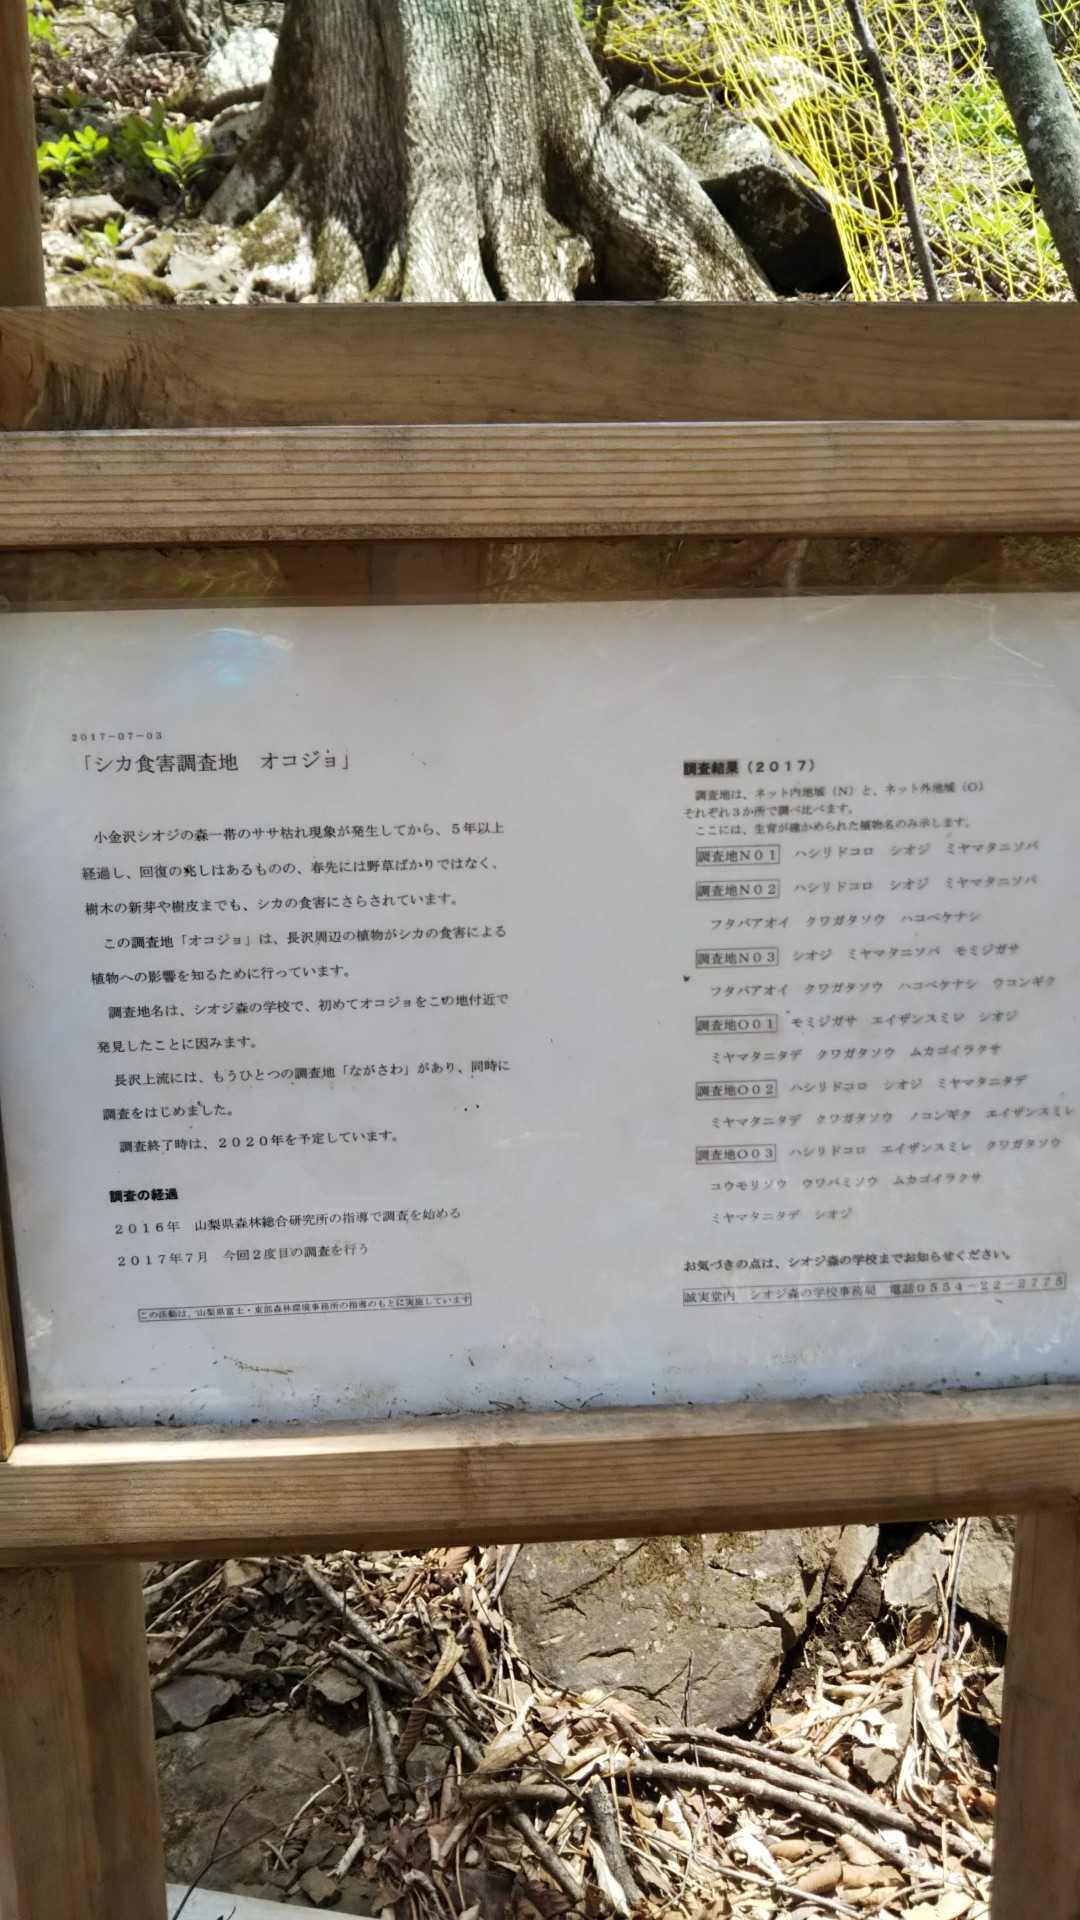 2017-07-03
「シカ食害調査地　オコジョ」
小金沢シオジの森一帯のササ枯れ現象が発生してから、５年以上
経過し、回復の兆しはあるものの、春先には野草ばかりではなく、
樹木の新芽や樹皮までも、シカの食害にさらされています。
この調査地「オコジョ」は、長沢周辺の植物がシカの食害による
植物への影響を知るために行っています。
調査地名は、シオジ森の学校で、初めてオコジョをこの地付近で
発見したことに因みます。
長沢上流には、もうひとつの調査地「ながさわ」があり、同時に
調査をはじめました。
調査終了時は、２０２０年を予定しています。
調査の経過
２０１６年　山梨県森林総合研究所の指導で調査を始める
２０１７年７月　今回２度目の調査を行う
この活動は、山梨県富士・東部森林環境事務所の指導のもとに実施しています
調査結果（２０１７）
調査地は、ネット内地域（Ｎ）と、ネット外地域（Ｏ）
それぞれ３か所で調べ比べます。
ここには、生育が確かめられた植物名のみ示します。
調査地Ｎ０１　ハシリドコロ　シオジ　ミヤマタニソバ
調査地Ｎ０２　ハシリドコロ　シオジ　ミヤマタニソバ
フタバアオイ　クワガタソウ　ハコベケナシ
調査地Ｎ０３　シオジ　ミヤマタニソバ　モミジガサ
フタバアオイ　クワガタソウ　ハコベケナシ　ウコンギク
調査地Ｏ０１　モミジガサ　エイザンスミレ　シオジ
ミヤマタニタデ　クワガタソウ　ムカゴイラクサ
調査地Ｏ０２　ハシリドコロ　シオジ　ミヤマタニタデ
ミヤマタニタデ　クワガタソウ　ノコンギク　エイザンスミレ
調査地Ｏ０３　ハシリドコロ　エイザンスミレ　クワガタソウ
コウモリソウ　ウワバミソウ　ムカゴイラクサ
ミヤマタニタデ　シオジ
お気づきの点は、シオジ森の学校までお知らせください。
誠実堂内　シオジ森の学校事務局　電話０５５４－２２－２７７５